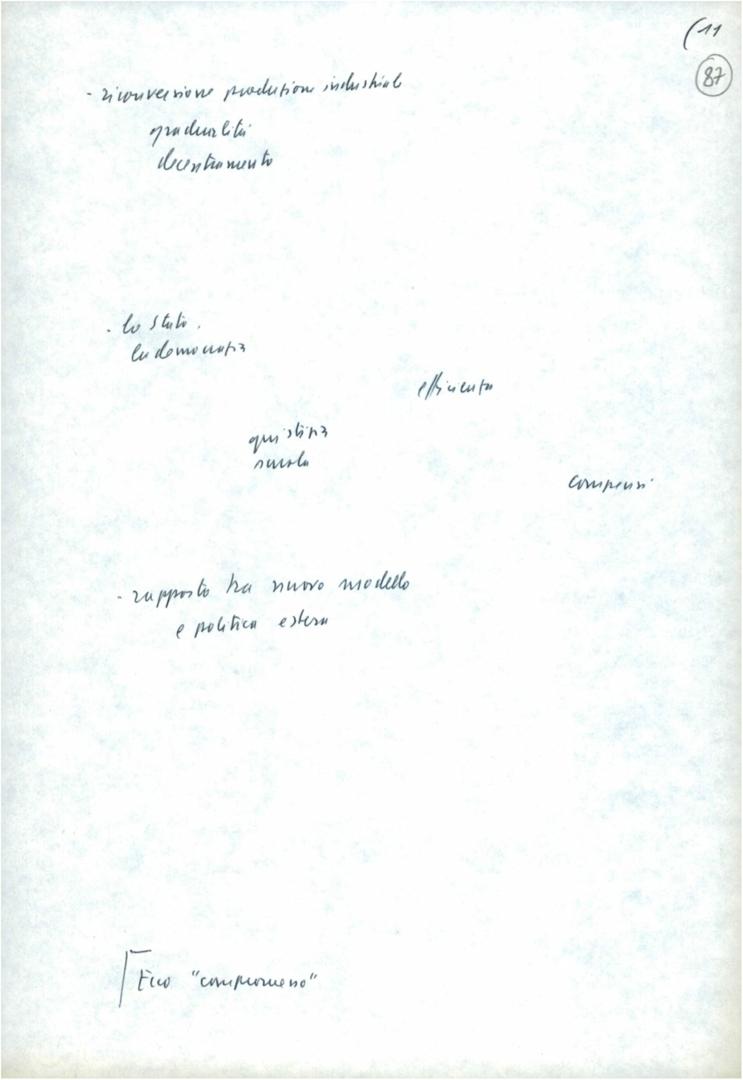 (11
87
- riconversione produzione industriale
gradualità
decentramento
- lo Stato,
la democrazia
efficienza
giustizia
scuola
compensi
- rapporto tra nuovo modello
e politica estera
Ecco "compromesso"